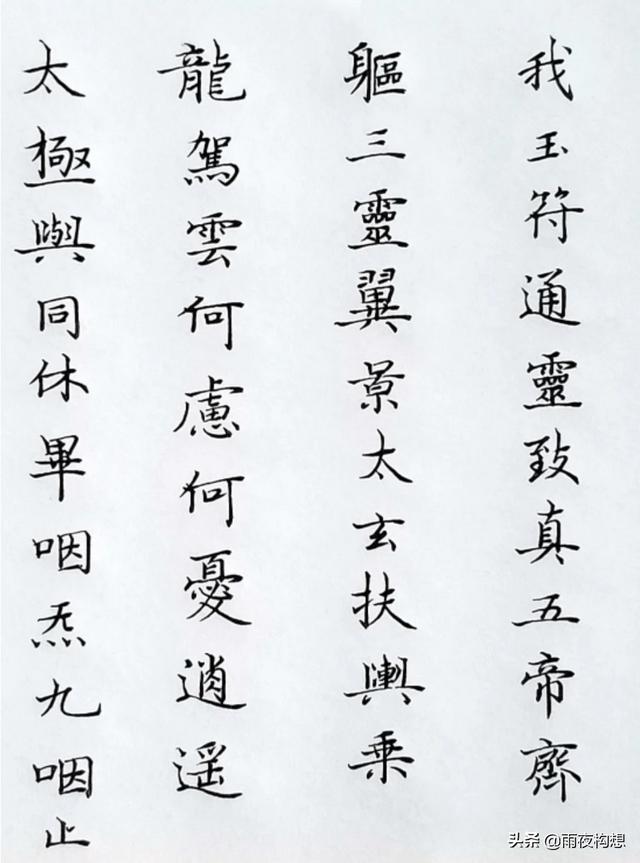 我玉符通靈致真五帝齊
軀三靈翼景太玄扶輿乗
龍駕雲何慮何憂逍遥
太極與同休畢咽炁九咽止
头条 @雨夜构想